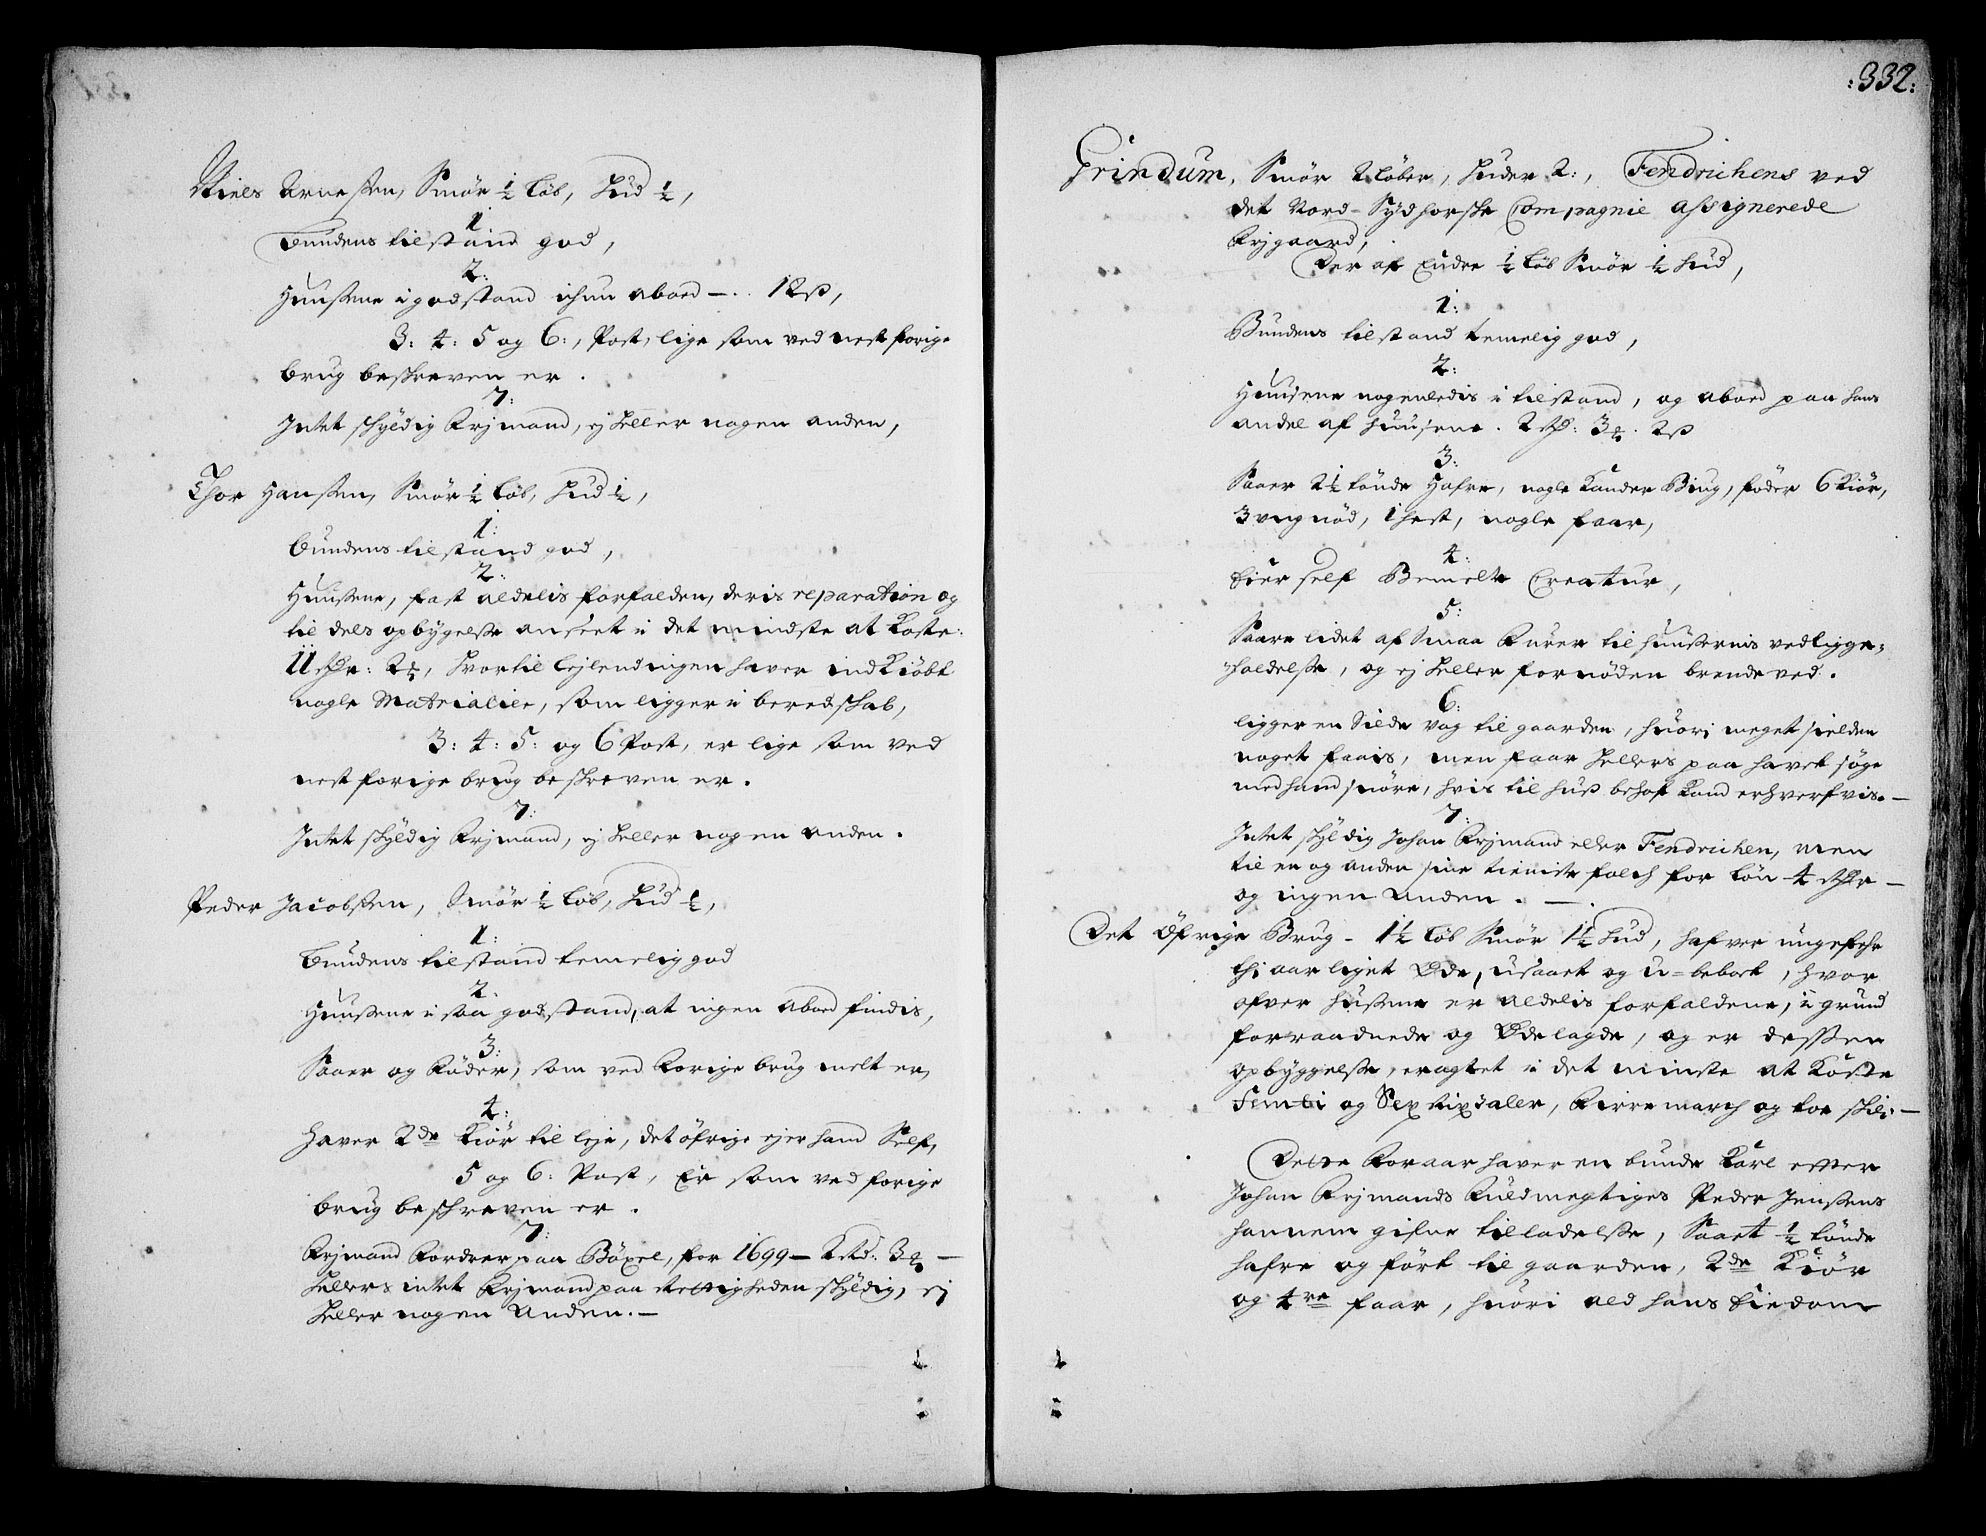 Niels Arneßen, Smør ½ Løb, Hud ½,
1
Bundens tilstand god,
2:
Hussene i god stand ichun aboed —. 12 ß,
3: 4: 5 og 6:, Post, lige som ved nest forige
brug beskreven er.
7:
Intet skyldig Rejmand, ej heller nogen anden,
Thor Hanßen, Smør ½ Løb, Hud ½,
1:
bundens tilstand god,
2:
Hussene, fast aldelis forfalden, deris reparation og
til dels opbygelse anseet i det mindste at Koste:
11 rdr: 2 , hvortil lejlendingen haver indkiøbt
nogle Matrialier, som ligger i beredskab,
3: 4: 5: og 6 Post, er lige som ved
nest forige brug beskreven er.
7:
Intet skyldig Rejmand, ej heller nogen anden.
Peder Jacobßen, Smør ½ Løb, Hud ½,
1:
bundens tilstand temelig god
2:
Hussene i saa god stand, at ingen aboed findis,
3:
Saaer og føder, som ved forige brug melt er,
4:
haver 2de Kiør til leje, det øfrige ejer hand Self,
5 og 6: Post, Er som ved forige
brug beskreven er.
7:
Rejmand fordrer paa Bøxel, for 1699 — 2 rd: 3 —
hellers intet Rejmand paa rettigheden skyldig, ej
heller nogen anden. —
:332:
Grindum, Smør 2 Løber, huder 2:, Fendrichens ved
det Nord-Sydhorske Compagnie assignerede
frjgaard,
Der af Endre ½ Løb Smør ½ hud,
1:
Bundens tilstand temelig god,
2:
Husene nogenledis i tilstand, og aboed paa hans
andel af husene. 2 rd: 3 . 2 ß
3:
Saaer 2½ tønde Hafre, nogle Kander Biug, føder 6 Kiør,
3 ungnød, 1 hest, nogle faar,
4:
Eier self Bemelte Creatur,
5:
Saare lidet af smaa furer til hussernis vedlige-
holdelse, og ej heller fornøden brendeved.
6:
ligger en Silde vog til gaarden, huori meget sielden
noget faais, men faar hellers paa havet søge
med hand snøre, hvis til huß behof kand erhverfvis. —
7:
Intet skyldig Johan Rejmand eller Fendrichen, men
til en og anden sine tieniste folch for løn 4 rdr —
og ingen anden. —
Det Øfrige Brug - 1½ Løb Smør 1½ hud, hafver ungefehr
thi aar liget Øde, usaaet og u-beboet, hvor
ofver husene er aldelis forfaldene, i grund
forraadnede og Ødelagde, og er dessen
opbyggelse, eragtet i det minste at Koste
Femti og Sex rixdaler, firre march og toe skil: —
Dette foraar haver en bunde Karl efter
Johan Rejmands fuldmegtiges Peder Jenßens
hannem gifne tilladelse, Saaet ½ tønde
hafre og ført til gaarden, 2de Kiør
og 4re faar, huori ald hans Eiedom